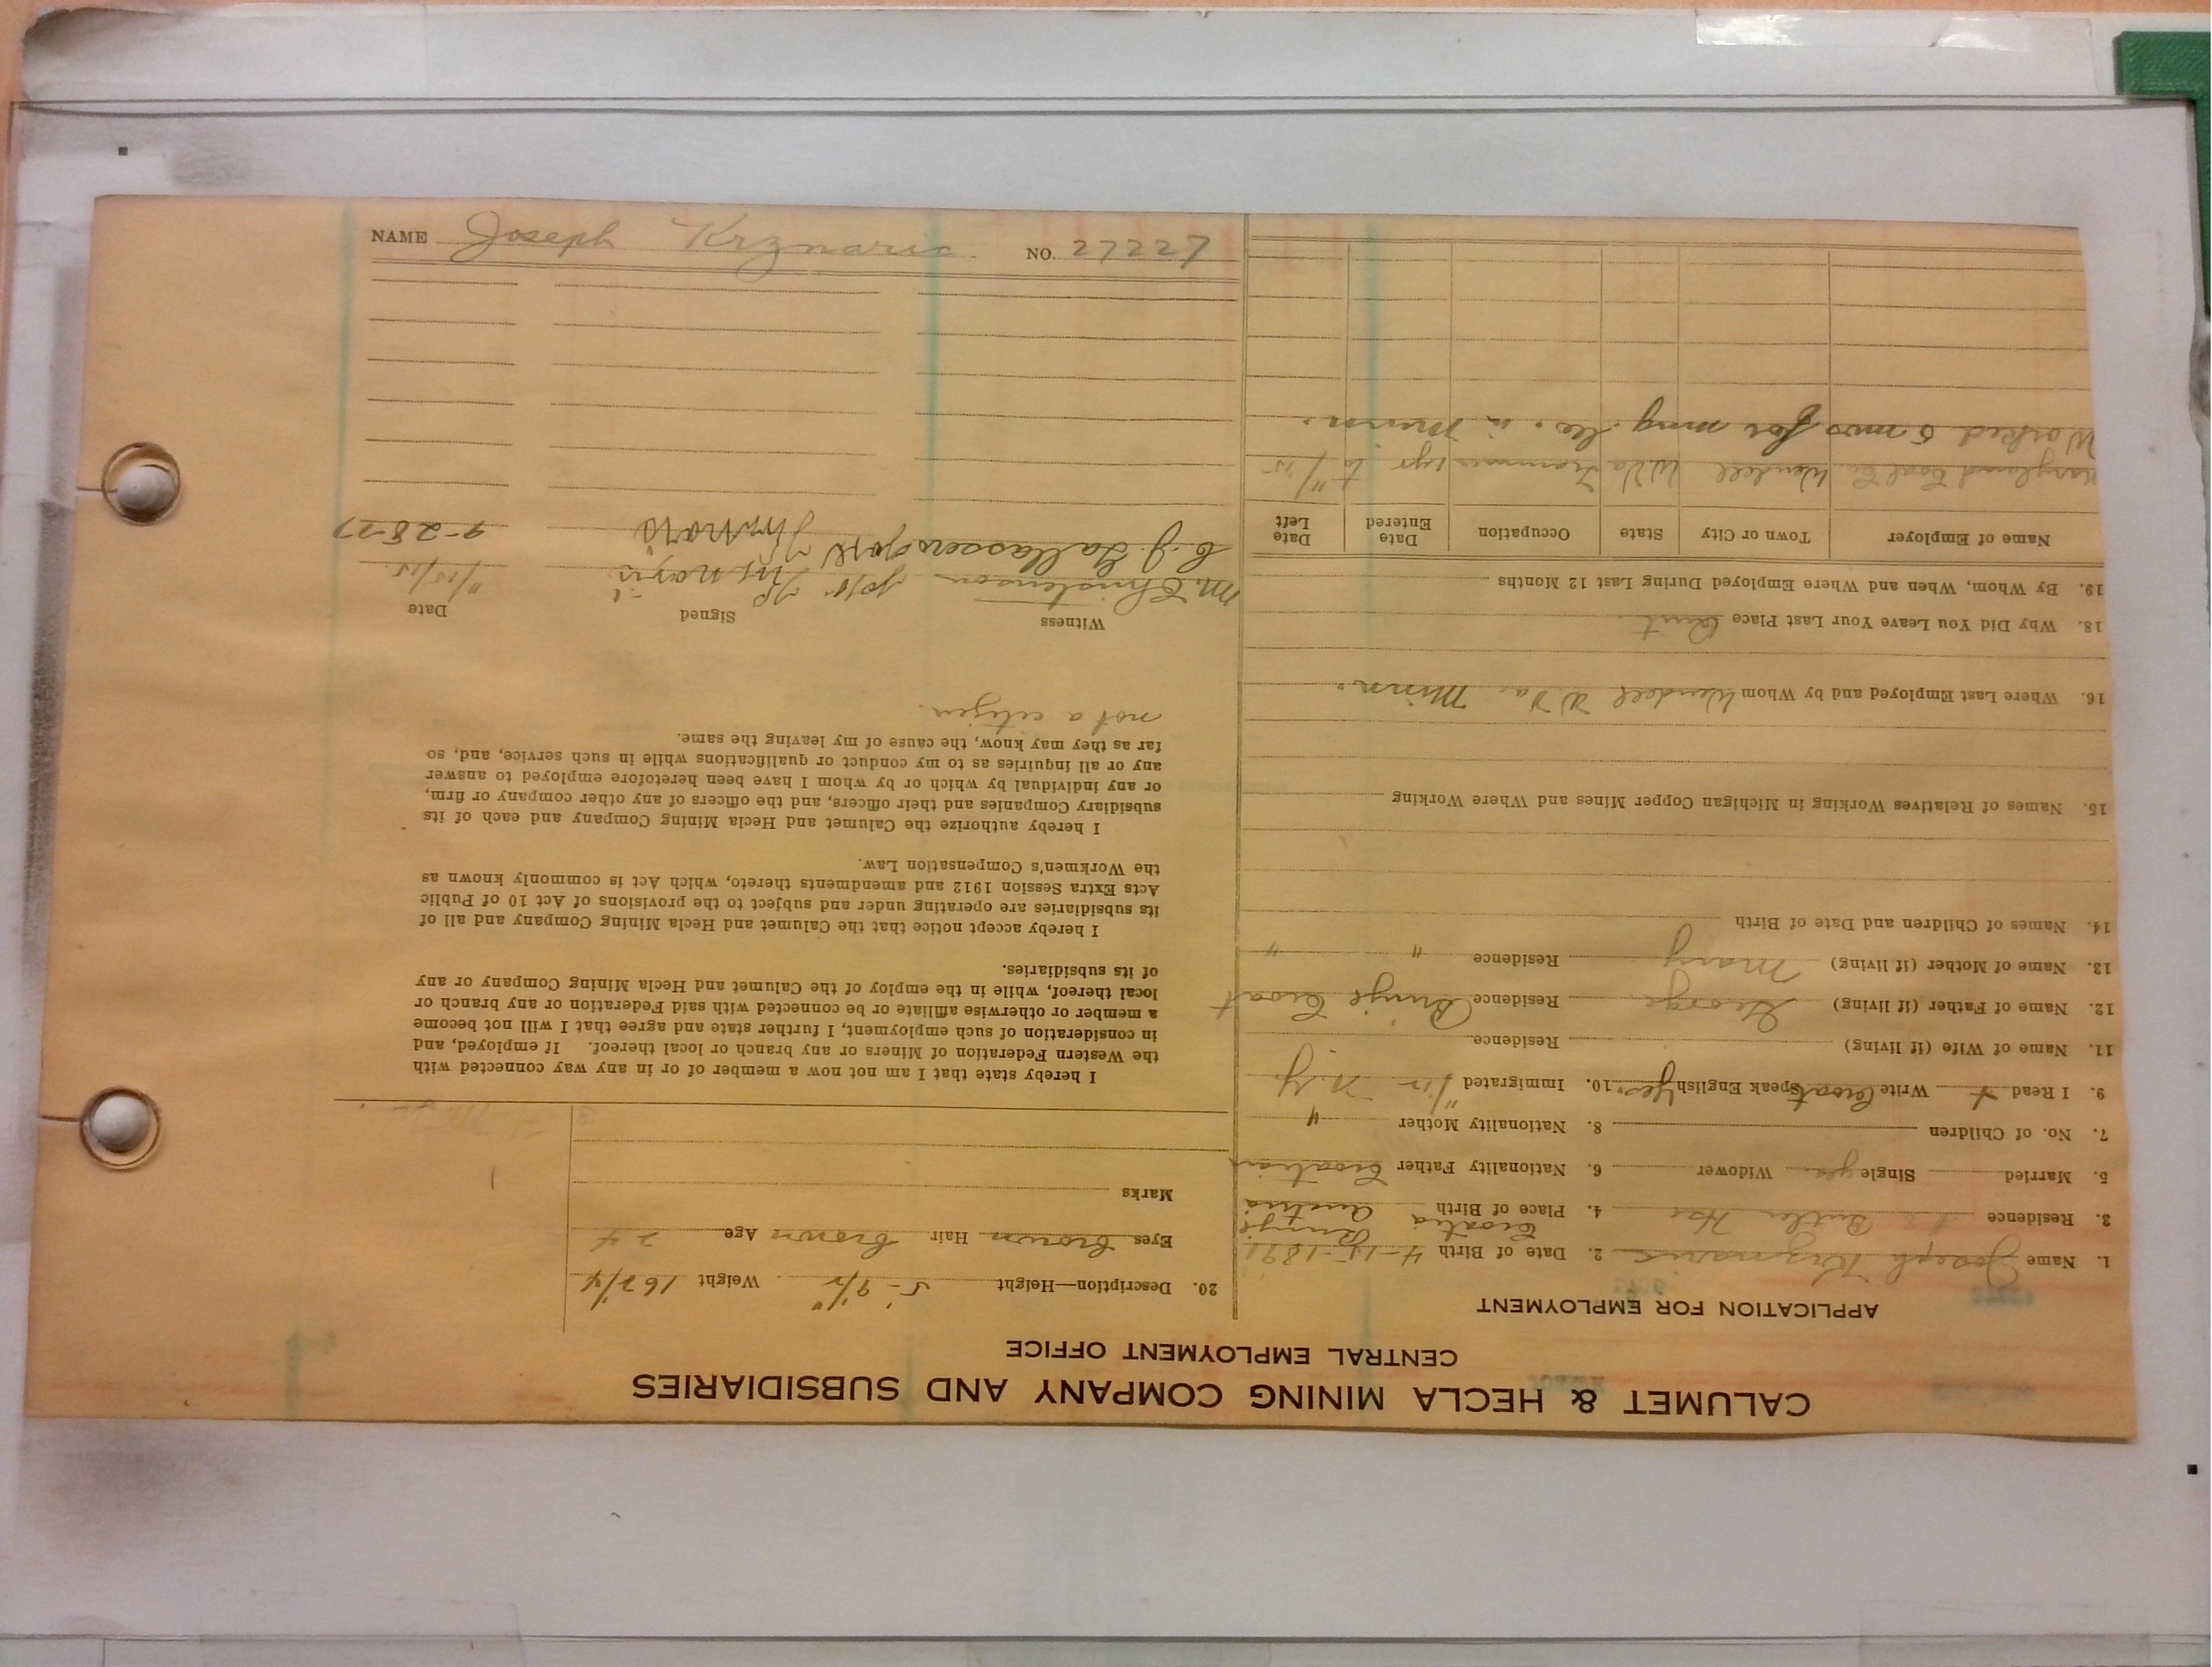 CALUMET & HECLA MINING COMPANY AND SUBSIDIARIES
CENTRAL EMPLOYMENT OFFICE
APPLICATION FOR EMPLOYMENT
1. Name Joseph Krznaric 2. Date of Birth 4-15-1891
Croatia
3. Residence Butler Hse 4. Place of Birth Austria
5. Married Single yes Widower 6. Nationality Father Croatian
7. No. of Children 8. Nationality Mother "
9. I Read + Write Croat Speak English Yes 10. Immigrated N.Y.
11. Name of Wife (if living) Residence
12. Name of Father (if living) George Residence Croat
13. Name of Mother (if living) Mary Residence " "
14. Names of Children and Date of Birth
15. Names of Relatives Working in Michigan Copper Mines and Where Working
16. Where Last Employed and by Whom Wendell W. Va. Minn.
18. Why Did You Leave Your Last Place Quit
19. By Whom, When and Where Employed During Last 12 Months
Name of Employer Town or City State Occupation Date Entered Date Left
Maryland Coal Co Wendell W Va Trammer 1 yr to 11/15
Worked 5 mos for mng. Co. in Minn.
20. Description—Height 5-9 1/2" Weight 162 1/4
Eyes brown Hair brown Age 24
Marks
I hereby state that I am not now a member of or in any way connected with
the Western Federation of Miners or any branch or local thereof. If employed, and
in consideration of such employment, I further state and agree that I will not become
a member or otherwise affiliate or be connected with said Federation or any branch or
local thereof, while in the employ of the Calumet and Hecla Mining Company or any
of its subsidiaries.
I hereby accept notice that the Calumet and Hecla Mining Company and all of
its subsidiaries are operating under and subject to the provisions of Act 10 of Public
Acts Extra Session 1912 and amendments thereto, which Act is commonly known as
the Workmen's Compensation Law.
I hereby authorize the Calumet and Hecla Mining Company and each of its
subsidiary Companies and their officers, and the officers of any other company or firm,
or any individual by which or by whom I have been heretofore employed to answer
any or all inquiries as to my conduct or qualifications while in such service, and, so
far as they may know, the cause of my leaving the same.
not a citizen.
Witness Signed Date
M. Christenson 11/15/15
C. J.
NAME Joseph Krznaric NO. 27227